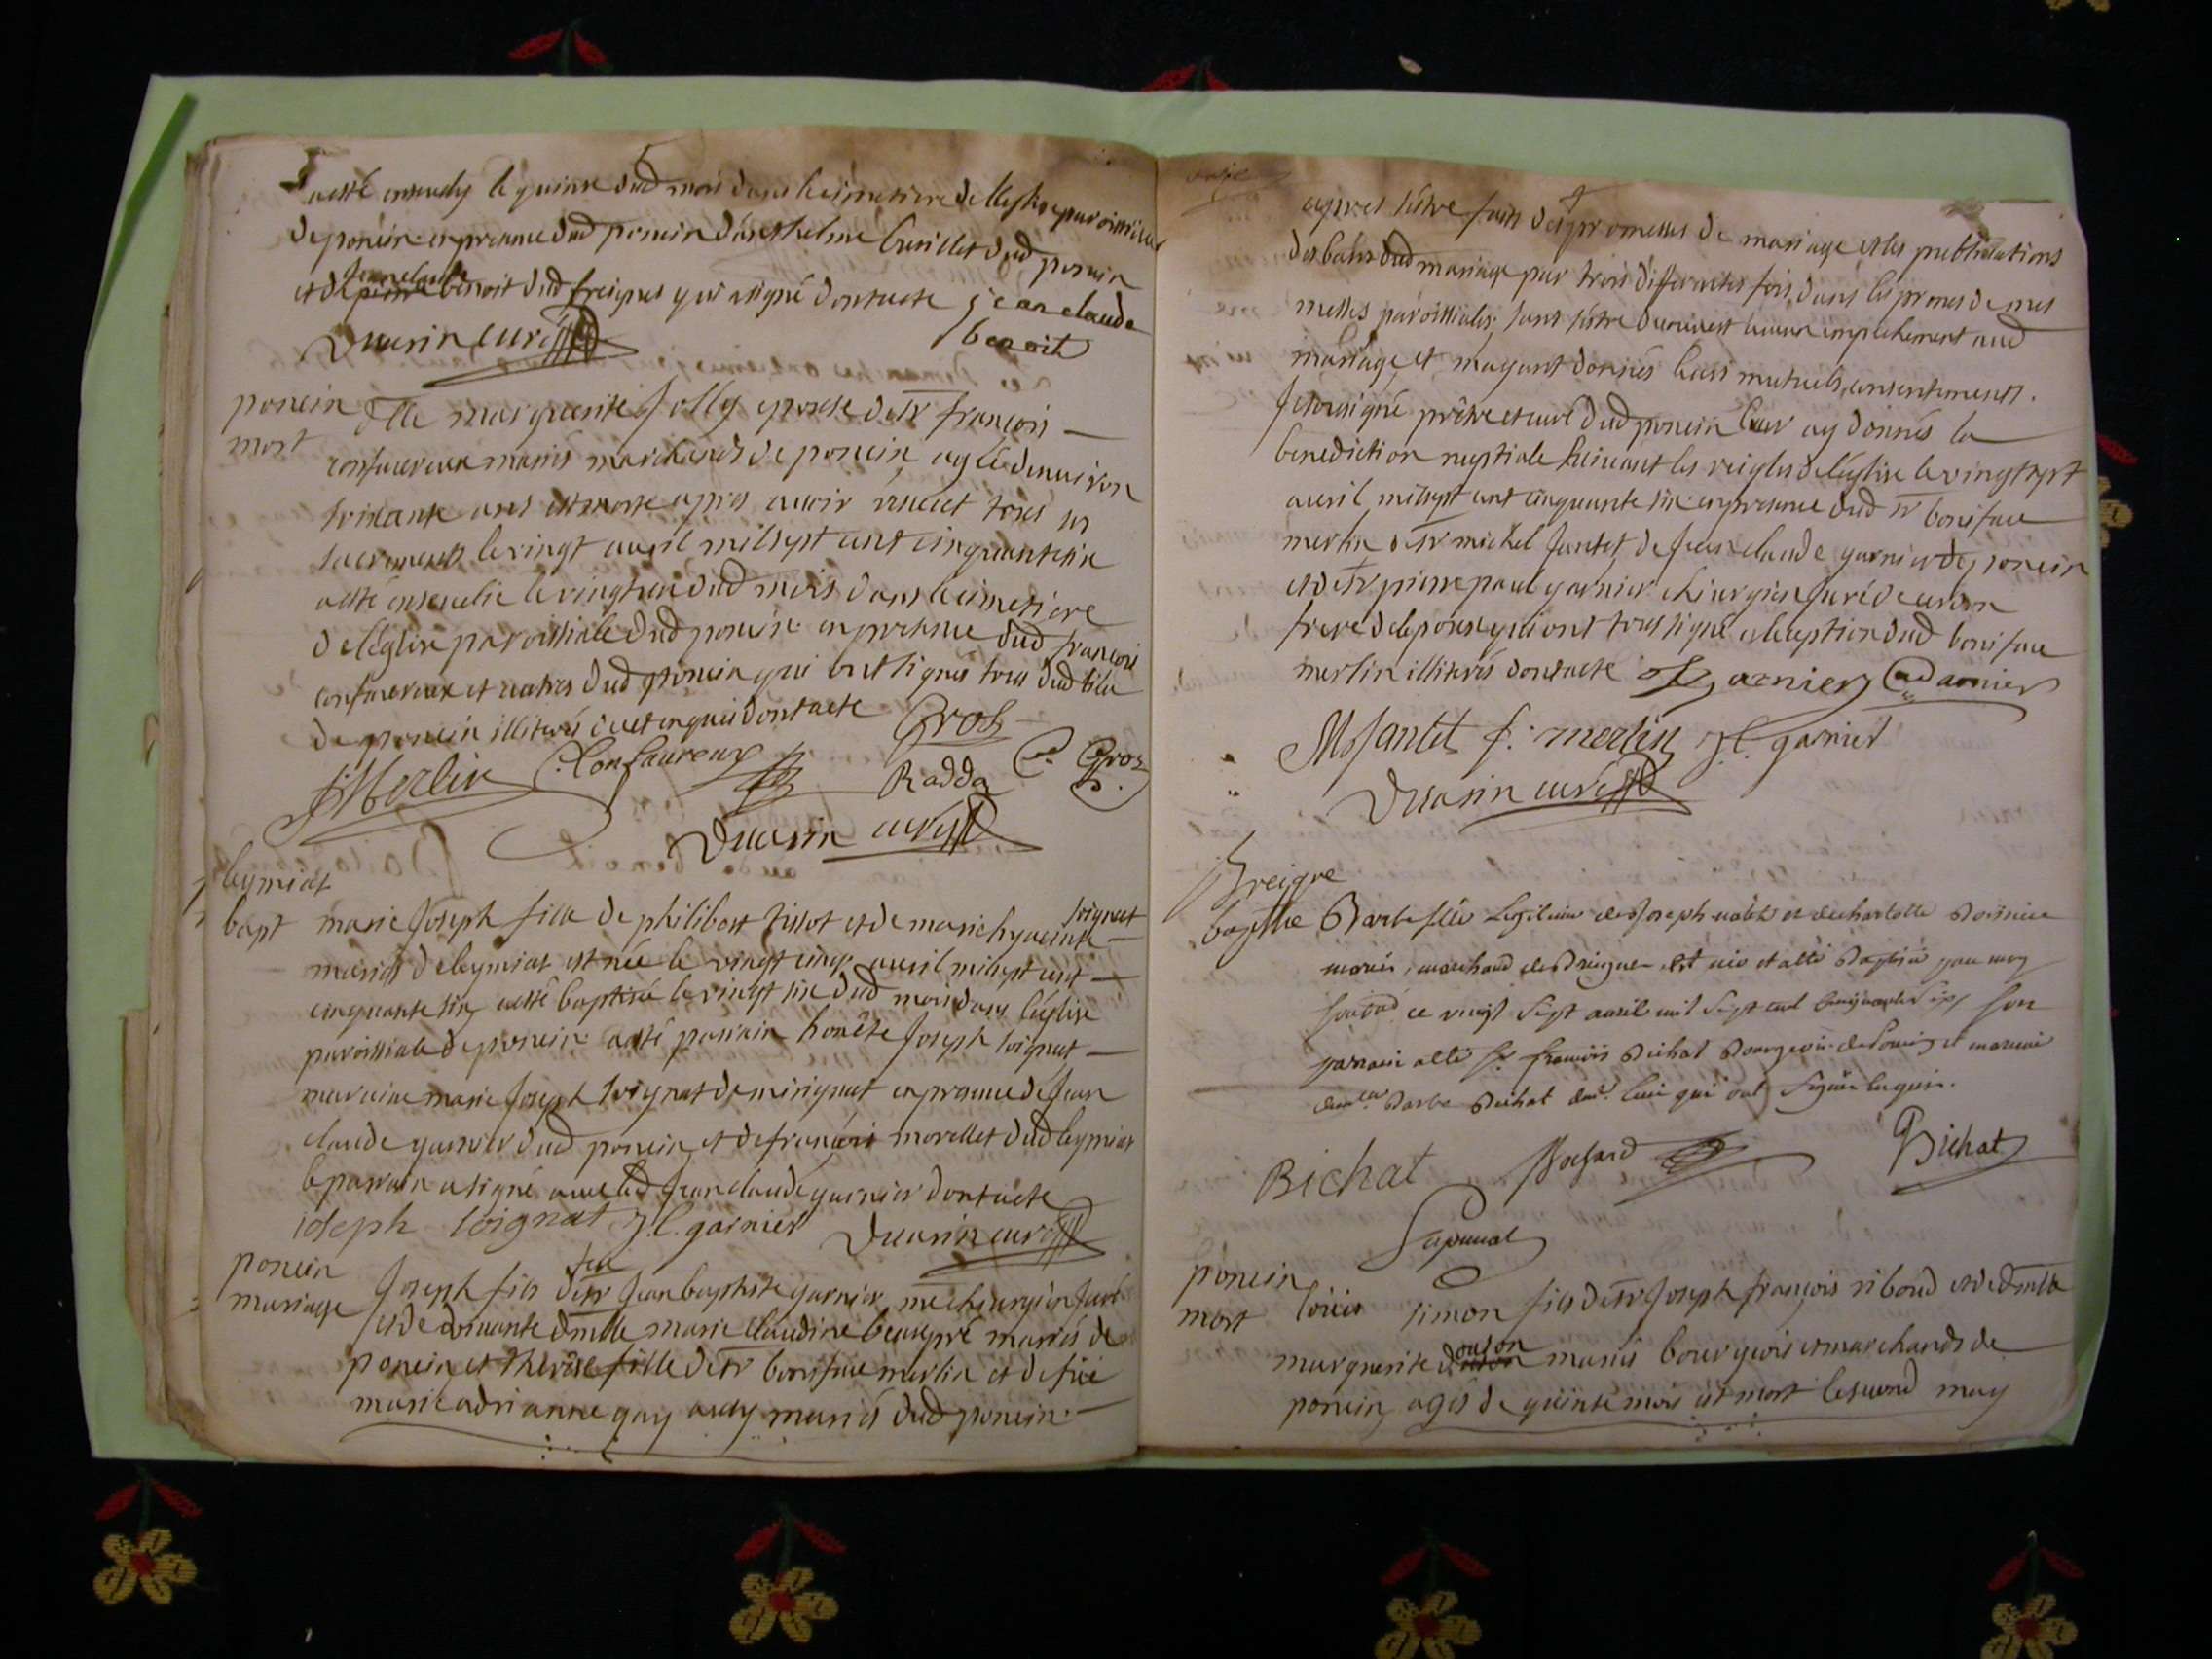 aesté ensevely le quinse dud mois dans le cimetiere de l'esglise paroissialle
de poncin en presence dud poncin d'anthelme Cuvillet dud poncin
jean claude
et de pierre benoit dud breignes qui a signé dont acte jean claude
benoit
Duvarin curé
poncin
mort
Dlle marguerite Jolly epouse de sr françois
confavereux mariés marchands de poncin agée d'environ
soixante ans est morte apres avoir receut tous ses
sacrements le vingt avril mil sept cent cinquante six
a esté ensevelie le vingt un dud mois dans le cimetiere
de l'églize paroissiale dud poncin en presence dud françois
confavereux et autres dud poncin qui ont signés tous dud
de poncin illiterés de ce enquis dont acte Gros
JMerlin C. Confavreux Radda C. Gros
Duvarin curé
leymiat
bapt
marie Joseph fille de philibert tissot et de marie hyacinte
soignat
mariés de leymiat est née le vingt cinq avril mil sept cent
cinquante six a esté baptisée le vingt six dud mois dans l'église
paroissiale de poncin a esté parrain honête Joseph soignat
maraine marie Joseph soignat de mirignat en presence de Jean
claude garnier dud poncin et de françois morellet dud leymiat
le parrain a signé avec led Jean claude garnier dont acte
joseph soignat J. C. garnier Duvarin curé
poncin
mariage
Joseph fils de
feu
sr Jean baptiste garnier me chirurgien Juré
et de vivante dmlle marie claudine beaupré mariés de
poncin et therese fille de sr boniface merlin et de feüe
marie adrianne gay aussy mariés dud poncin
apres s'être faits des promesses de mariage et les publications
des bans dud mariage par trois differentes fois dans les prones de mes
messes paroissiales, sans s'être decouvert aucun empechement aud
mariage et m'ayant donnés leurs mutuels consentements.
Je soussigné prêtre et curé dud poncin leur ay donnés la
benediction nuptiale suivant les reigles de l'église le vingt sept
avril mil sept cent cinquante six en presence dud sr boniface
merlin de sr michel Jantet de Jean claude garnier de poncin
et de sr pierre paul garnier chirurgien Juré de cerdon
frere de l'epoux qui ont tous signé a l'exeption dud boniface
merlin illiterés dont acte garnier garnier
M Jantet f. merlin J. C. garnier
Duvarin curé
Breigne
baptise
Barbe fille Legitime de Joseph et de charlotte
mariés, marchand de Breignes est née et a été Baptisée par moy
ce vingt Sept avril mil Sept cent Cinquante six Son
parrain a été Sr françois Bichat Bourgeois de Poncin et maraine
Barbe Bichat dud. lieu qui ont Signés Enquis.
Bichat Bichat
poncin
mort
loüis simon fils de sr Joseph françois riboud et de dmlle
marguerite
mariés bourgeois et marchands de
poncin agés de quinse mois est mort le second may